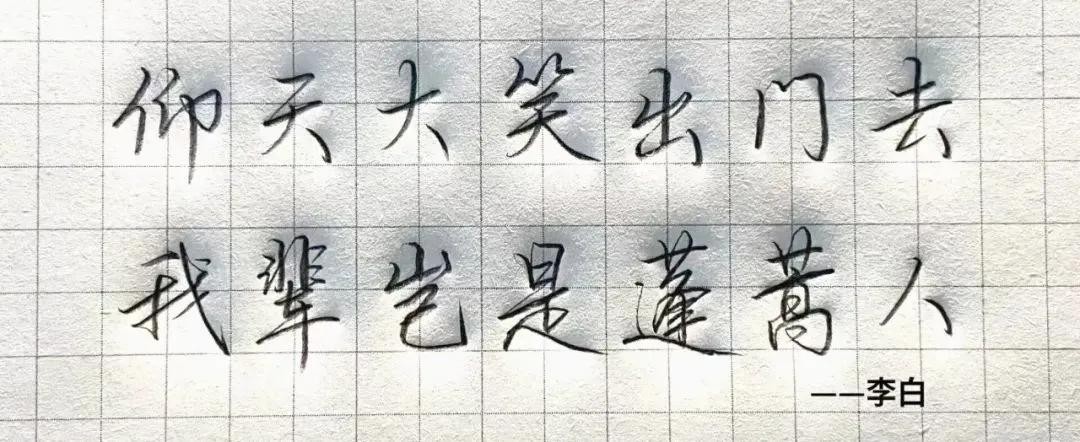 仰天大笑出门去
我辈岂是蓬蒿人
——李白